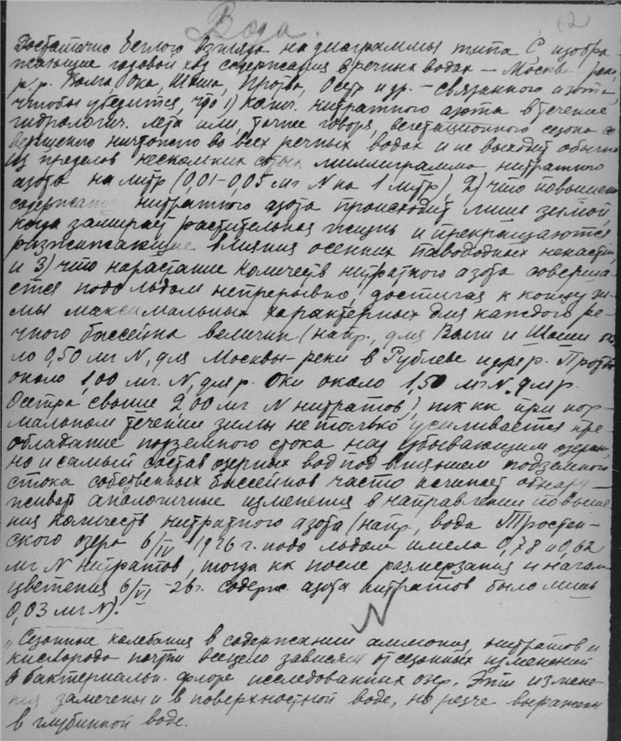 Вода.
62
Достаточно беглого взгляда на диаграммы типа С изобра-
жающие годовой ход содержания в речных водах – Москва реки,
р/р. Ока, Шоша, Протва, Осетр и др. – связанного азота,
чтобы убедится, что 1) колич. нитратного азота в течение
гидрологич. лета или, точнее говоря, вегетационного сезона со-
вершенно ничтожно во всех речных водах и не выходит обычно
из пределов нескольких сотых миллиграмма нитратного
азота на литр (0,01–0,05 мг N на 1 литр) 2) что повышение
содержания нитратного азота происходит лишь зимой,
когда замирает растительная жизнь и прекращаются
разжижающие влияния осенних паводочных ненастий
и 3) что нарастание количеств нитратного азота соверша-
ется подо льдом непрерывно, достигая к концу зи-
мы максимальных характерных для каждого ре-
чного бассейна величин (напр., для Волги и Шоши око-
ло 0,50 мг N, для Москвы-реки в Рублеве и для р. Протвы
около 1,00 мг. N, для р. Оки около 1,50 мг N, для р.
Осетра свыше 2,00 мг N нитратов) тк кк при нор-
мальном течении зимы не только усиливается пре-
обладание подземного стока над убывающим озерным,
но и самый состав озерных вод под влиянием подземного
стока собственных бассейнов часто начинает обнару-
живать аналогичные изменения в направлении повыше-
ния количеств нитратного азота (напр., вода
ского озера 6/IV 1926 г. подо льдом имела 0,78 и 0,62
мг N нитратов, тогда кк после размерзания и начала
цветения 6/VI –26г. содерж. азота нитратов было лишь
0,03 мг N).
N
„Сезонные колебания в содержании аммония, нитратов и
кислорода почти всецело зависят от сезонных изменений
в бактериальн. флоре исследованных озер. Эти измене-
ния замечены и в поверхностной воде, но резче выражены
в глубинной воде.